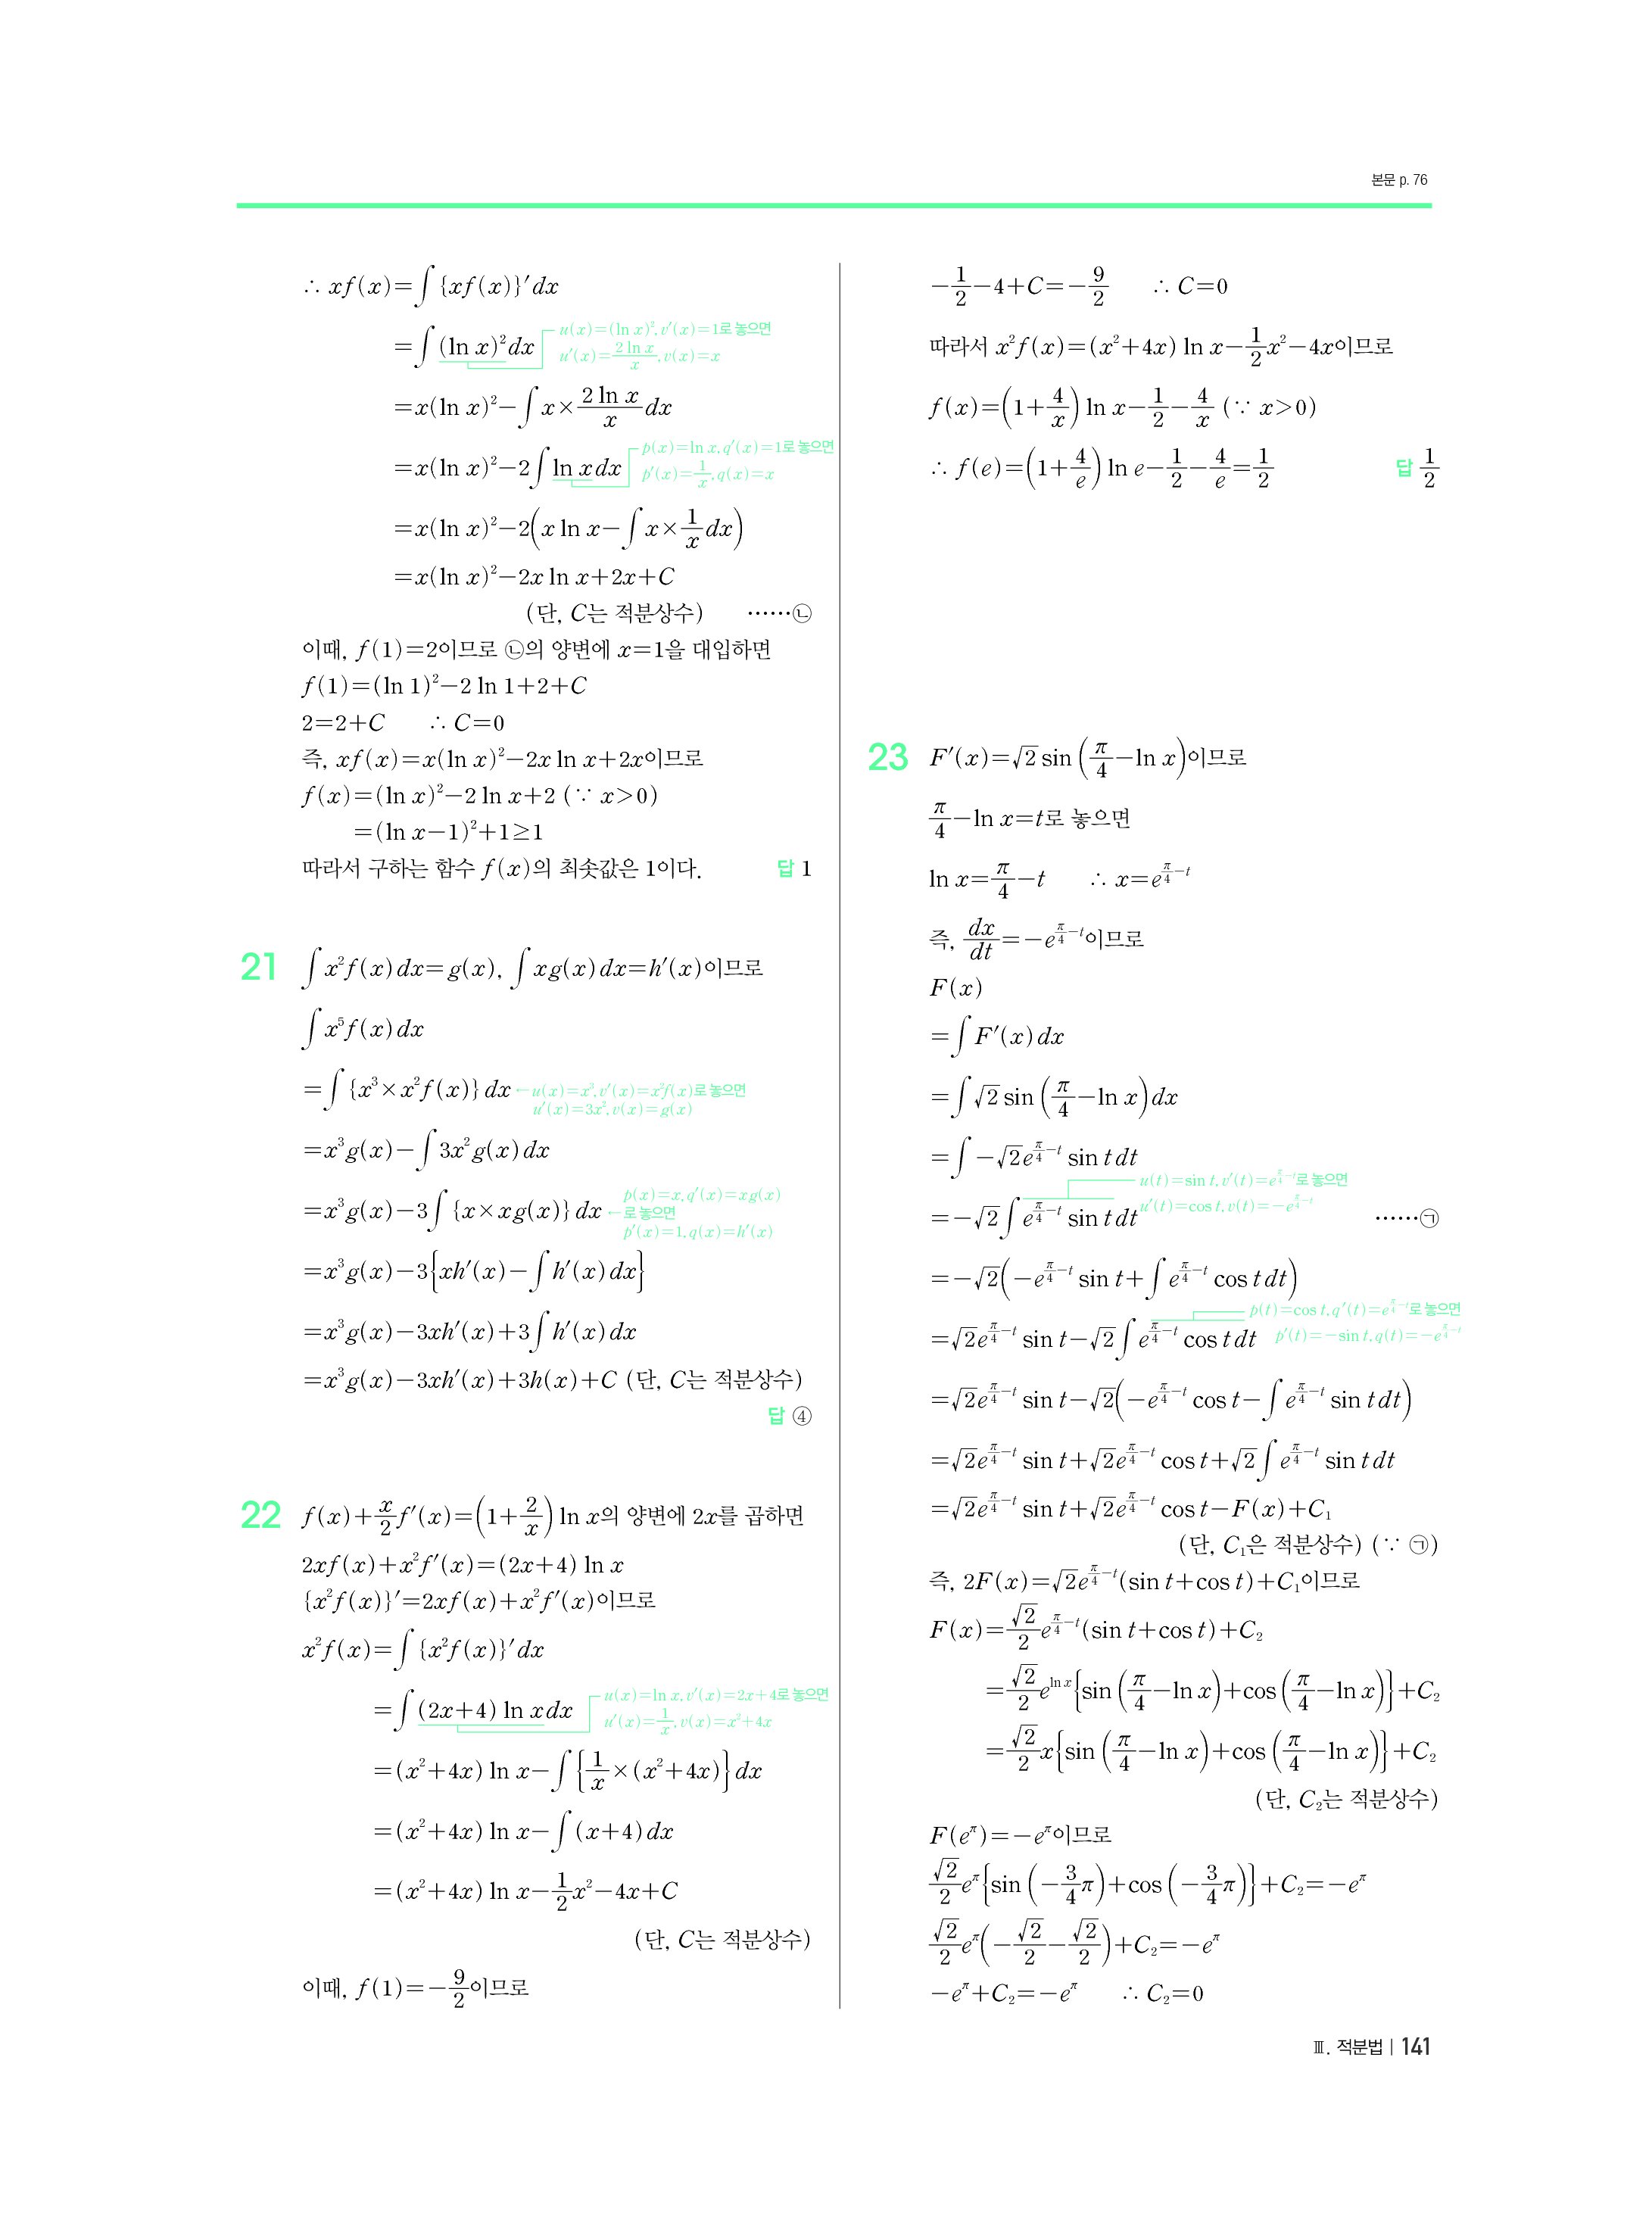 본문 p. 76
∴ xf(x)=∫{xf(x)}′dx
=∫(ln x)²dx
u(x)=(ln x)², v′(x)=1로 놓으면
u′(x)=\frac{2 ln x}{x}, v(x)=x
=x(ln x)²-∫x×\frac{2 ln x}{x}dx
=x(ln x)²-2∫ln x dx
p(x)=ln x, q′(x)=1로 놓으면
p′(x)=\frac{1}{x}, q(x)=x
=x(ln x)²-2(x ln x-∫x×\frac{1}{x}dx)
=x(ln x)²-2x ln x+2x+C
(단, C는 적분상수) ……㉡
이때, f(1)=2이므로 ㉡의 양변에 x=1을 대입하면
f(1)=(ln 1)²-2 ln 1+2+C
2=2+C ∴ C=0
즉, xf(x)=x(ln x)²-2x ln x+2x이므로
f(x)=(ln x)²-2 ln x+2 (∵ x>0)
=(ln x-1)²+1≥1
따라서 구하는 함수 f(x)의 최솟값은 1이다. 답 1
21 ∫x²f(x)dx=g(x), ∫xg(x)dx=h′(x)이므로
∫x⁵f(x)dx
=∫{x³×x²f(x)}dx ←u(x)=x³, v′(x)=x²f(x)로 놓으면
u′(x)=3x², v(x)=g(x)
=x³g(x)-∫3x²g(x)dx
=x³g(x)-3∫{x×xg(x)}dx ← p(x)=x, q′(x)=xg(x)
로 놓으면
p′(x)=1, q(x)=h′(x)
=x³g(x)-3{xh′(x)-∫h′(x)dx}
=x³g(x)-3xh′(x)+3∫h′(x)dx
=x³g(x)-3xh′(x)+3h(x)+C (단, C는 적분상수)
답 ④
22 f(x)+\frac{x}{2}f′(x)=(1+\frac{2}{x})ln x의 양변에 2x를 곱하면
2xf(x)+x²f′(x)=(2x+4) ln x
{x²f(x)}′=2xf(x)+x²f′(x)이므로
x²f(x)=∫{x²f(x)}′dx
=∫(2x+4) ln x dx
u(x)=ln x, v′(x)=2x+4로 놓으면
u′(x)=\frac{1}{x}, v(x)=x²+4x
=(x²+4x) ln x-∫{\frac{1}{x}×(x²+4x)}dx
=(x²+4x) ln x-∫(x+4)dx
=(x²+4x) ln x-\frac{1}{2}x²-4x+C
(단, C는 적분상수)
이때, f(1)=-\frac{9}{2}이므로
-\frac{1}{2}-4+C=-\frac{9}{2} ∴ C=0
따라서 x²f(x)=(x²+4x) ln x-\frac{1}{2}x²-4x이므로
f(x)=(1+\frac{4}{x})ln x-\frac{1}{2}-\frac{4}{x} (∵ x>0)
∴ f(e)=(1+\frac{4}{e})ln e-\frac{1}{2}-\frac{4}{e}=\frac{1}{2} 답 \frac{1}{2}
23 F′(x)=√2 sin(\frac{π}{4}-ln x)이므로
\frac{π}{4}-ln x=t로 놓으면
ln x=\frac{π}{4}-t ∴ x=e^{\frac{π}{4}-t}
즉, \frac{dx}{dt}=-e^{\frac{π}{4}-t}이므로
F(x)
=∫F′(x)dx
=∫√2 sin(\frac{π}{4}-ln x)dx
=∫-√2e^{\frac{π}{4}-t} sin t dt
u(t)=sin t, v′(t)=e^{\frac{π}{4}-t}로 놓으면
u′(t)=cos t, v(t)=-e^{\frac{π}{4}-t}
=-√2∫e^{\frac{π}{4}-t} sin t dt ……㉠
=-√2(-e^{\frac{π}{4}-t} sin t+∫e^{\frac{π}{4}-t} cos t dt)
p(t)=cos t, q′(t)=e^{\frac{π}{4}-t}로 놓으면
p′(t)=-sin t, q(t)=-e^{\frac{π}{4}-t}
=√2e^{\frac{π}{4}-t} sin t-√2∫e^{\frac{π}{4}-t} cos t dt
=√2e^{\frac{π}{4}-t} sin t-√2(-e^{\frac{π}{4}-t} cos t-∫e^{\frac{π}{4}-t} sin t dt)
=√2e^{\frac{π}{4}-t} sin t+√2e^{\frac{π}{4}-t} cos t+√2∫e^{\frac{π}{4}-t} sin t dt
=√2e^{\frac{π}{4}-t} sin t+√2e^{\frac{π}{4}-t} cos t-F(x)+C₁
(단, C₁은 적분상수) (∵ ㉠)
즉, 2F(x)=√2e^{\frac{π}{4}-t}(sin t+cos t)+C₁이므로
F(x)=\frac{√2}{2}e^{\frac{π}{4}-t}(sin t+cos t)+C₂
=\frac{√2}{2}e^{ln x}{sin(\frac{π}{4}-ln x)+cos(\frac{π}{4}-ln x)}+C₂
=\frac{√2}{2}x{sin(\frac{π}{4}-ln x)+cos(\frac{π}{4}-ln x)}+C₂
(단, C₂는 적분상수)
F(e^π)=-e^π이므로
\frac{√2}{2}e^π{sin(-\frac{3}{4}π)+cos(-\frac{3}{4}π)}+C₂=-e^π
\frac{√2}{2}e^π(-\frac{√2}{2}-\frac{√2}{2})+C₂=-e^π
-e^π+C₂=-e^π ∴ C₂=0
Ⅲ. 적분법 | 141